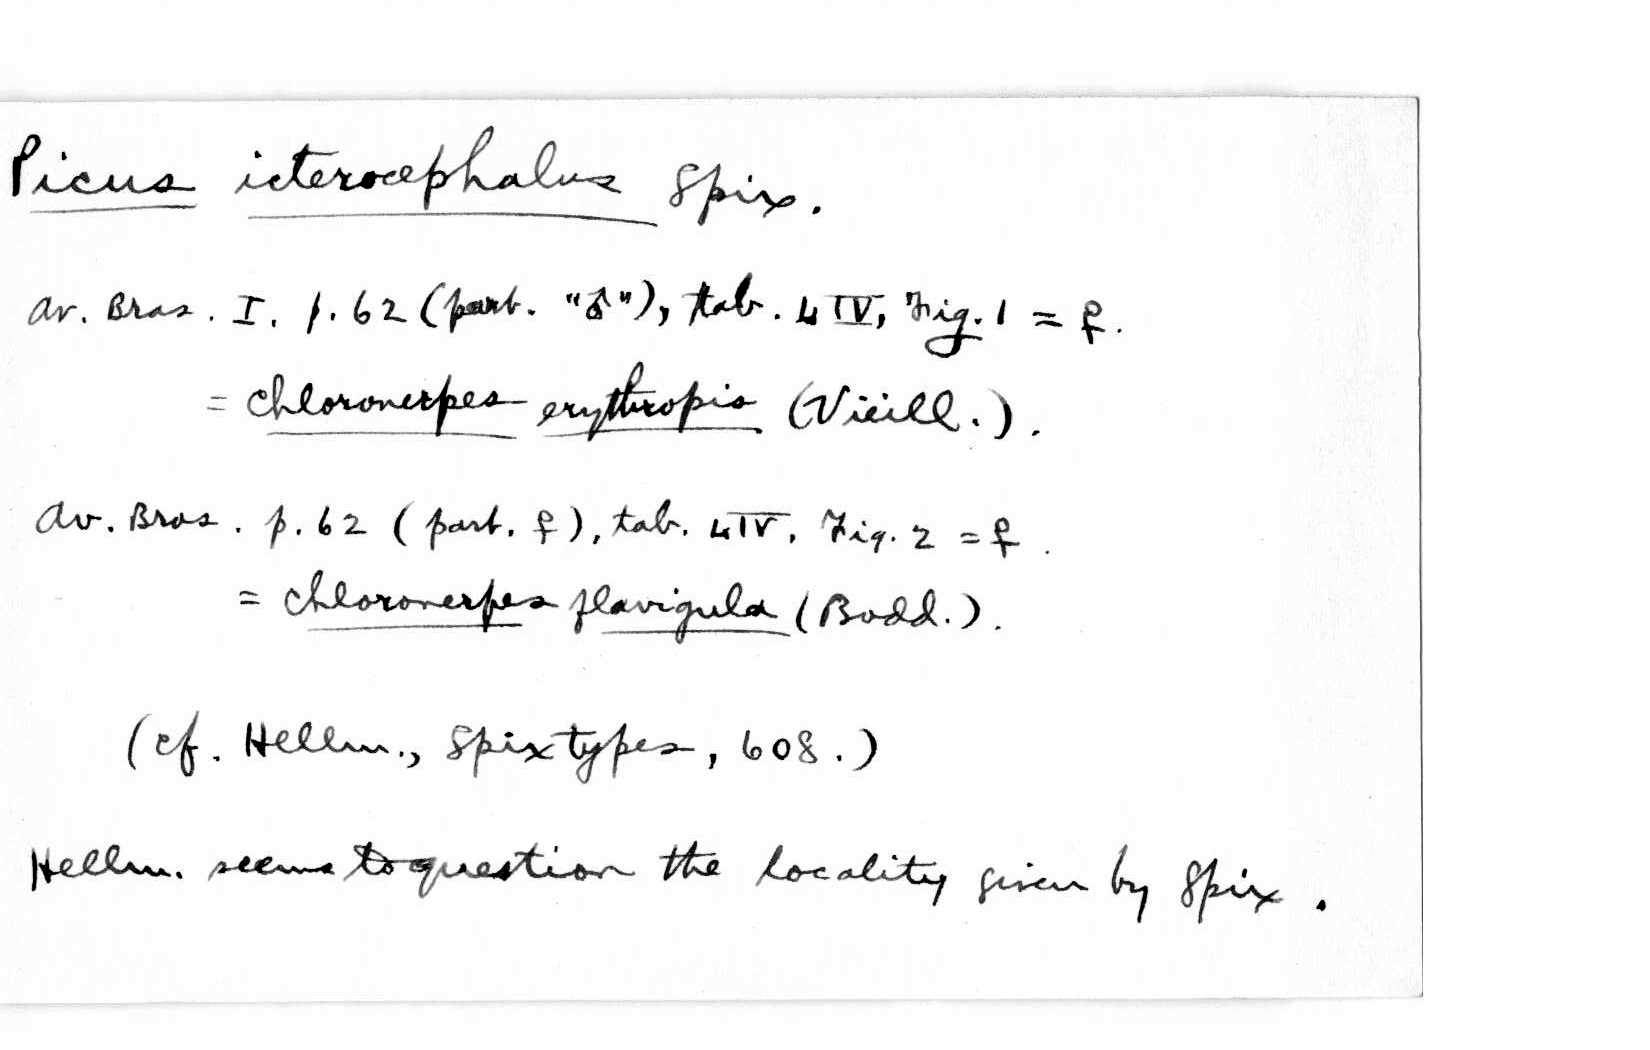 Picus icterocephalus Spix.
Av. Bras. I. p. 62 (part. "♂"), tab. LIV, Fig. 1 = ♀.
= Chloronerpes erythropis (Vieill.).
Av. Bras. p. 62 (part. ♀), tab. LIV, Fig. 2 = ♀.
= Chloronerpes flavigula (Bodd.).
(cf. Hellm., Spix types, 608.)
Hellm. seems to question the locality given by Spix.